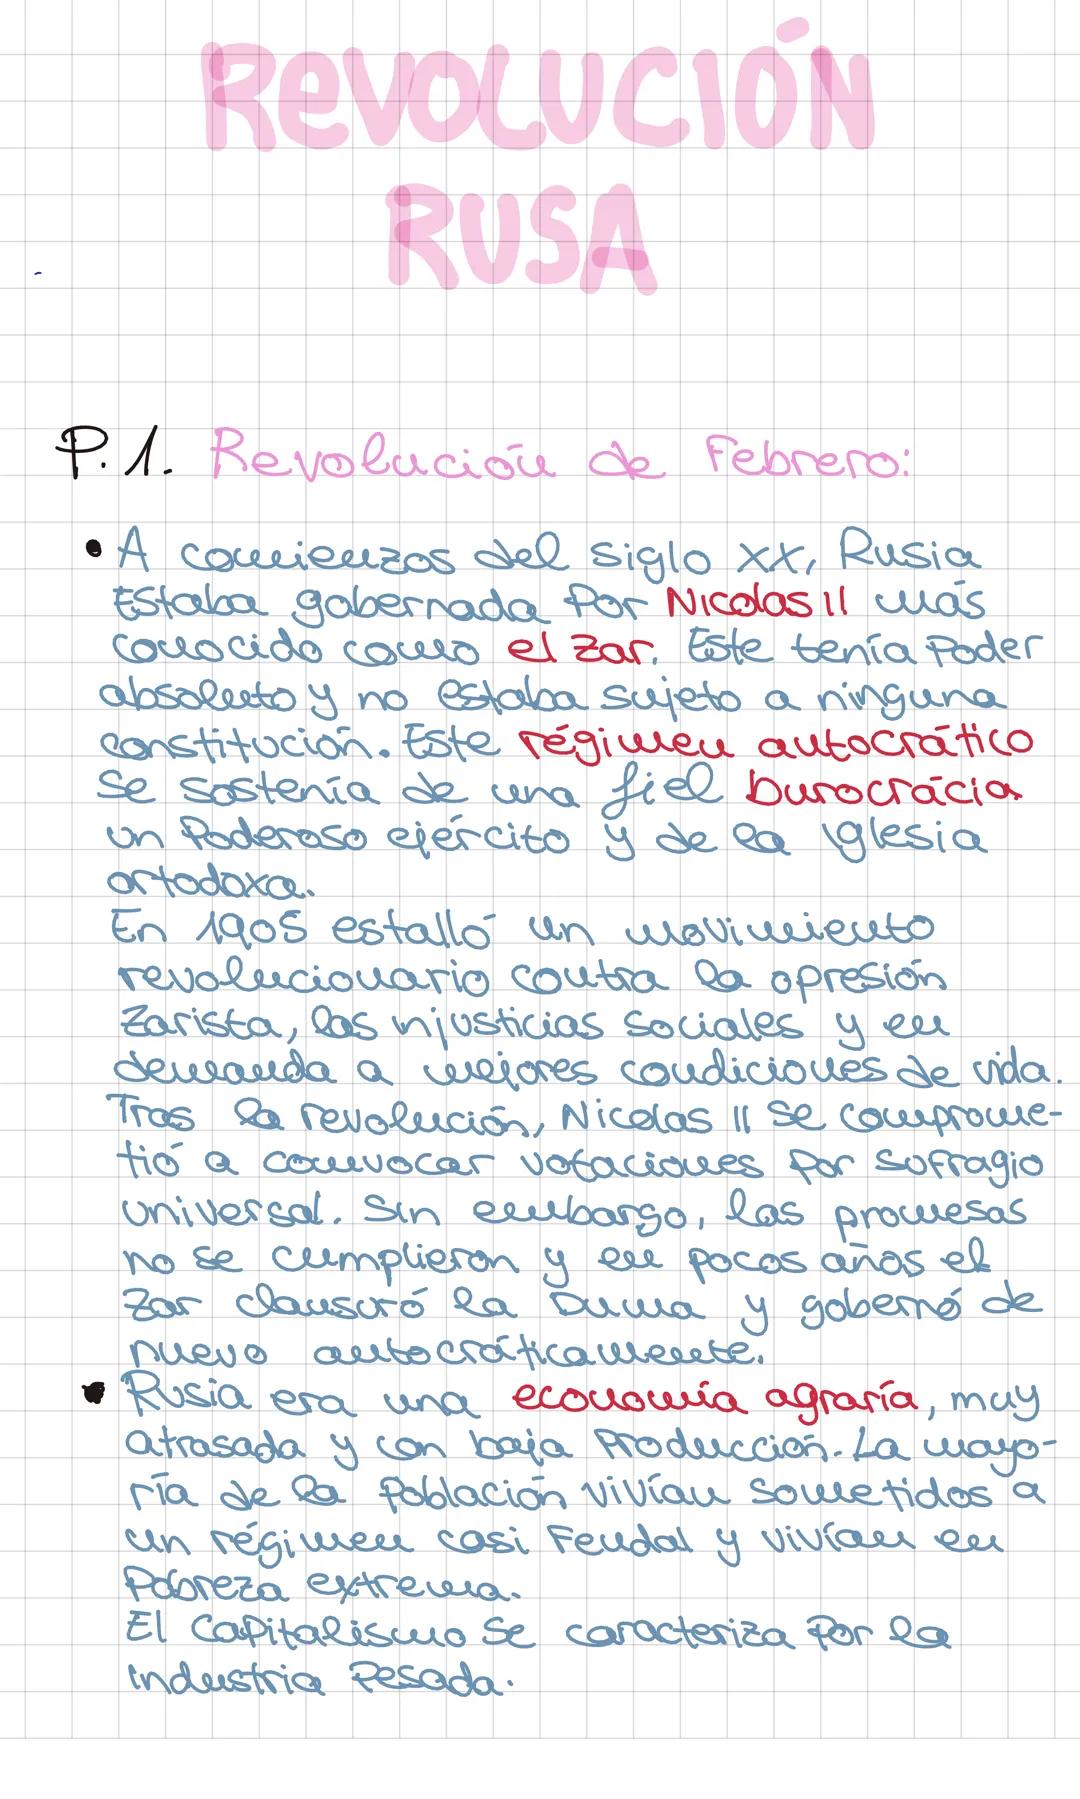 REVOLUCIÓN
RUSA
P.1. Revolución de Febrero:
• A comienzos del siglo XX, Rusia
Estaba gobernada Por Nicolas II más
conocido como el Zar. Este tenía Poder
absoluto y no estaba sujeto a ninguna
constitución. Este régimen autocrático
Se sostenía de una fiel burocrácia
un Poderoso ejército y de la iglesia
ortodoxa.
En 1905 estalló un movimiento
revolucionario contra la opresión
Zarista, las injusticias sociales y en
demanda a mejores condiciones de vida.
Tras la revolución, Nicolas II Se comprome-
tió a convocar votaciones por sufragio
universal. Sin embargo, las promesas
no se cumplieron y en pocos años el
Zar clausuró la Duma y gobernó de
nuevo autocráticamente.
• Rusia era una economía agraría, muy
atrasada y con baja Producción. La mayo-
ría de la Población vivían sometidos a
un régimen casi Feudal y vivían en
Pobreza extrema.
El Capitalismo Se caracteriza Por la
industria Pesada.